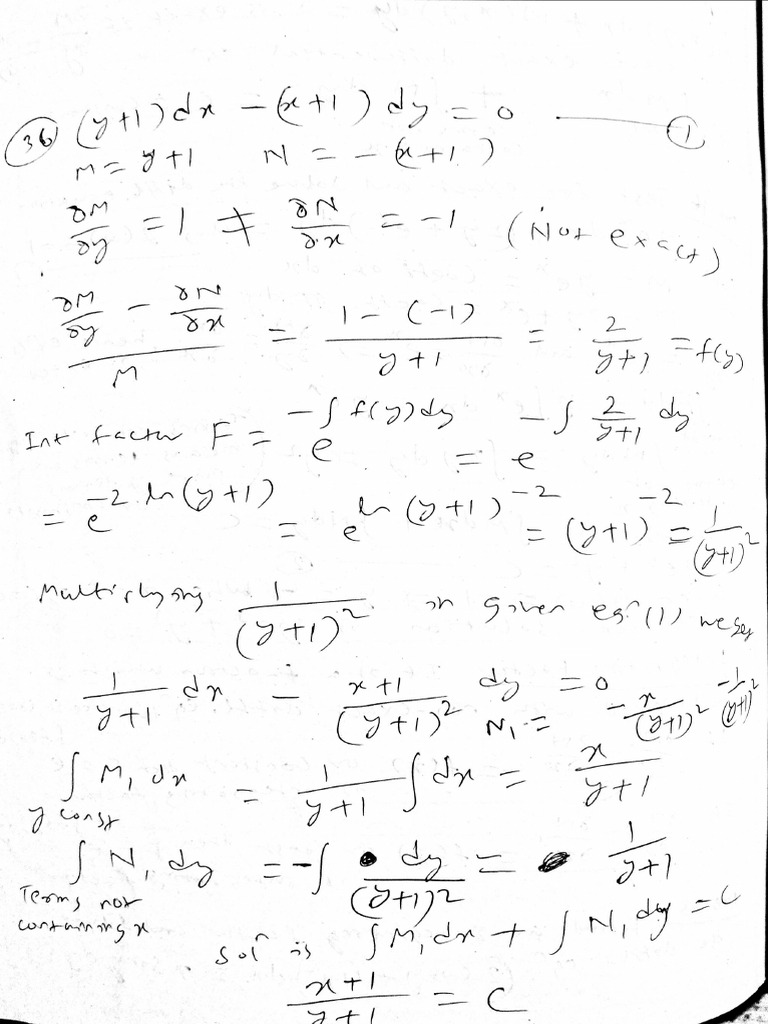 (36) (y+1)dx - (x+1) dy = 0 ——— (1)
M = y+1 N = -(x+1)
∂M/∂y = 1 ≠ ∂N/∂x = -1 (Not exact)
(∂M/∂y - ∂N/∂x)/M = (1-(-1))/(y+1) = 2/(y+1) = f(y)
Int factor F = e^(-∫f(y)dy) = e^(-∫ 2/(y+1) dy)
= e^(-2 ln(y+1)) = e^(ln(y+1)^-2) = (y+1)^-2 = 1/(y+1)^2
Multiplying 1/(y+1)^2 in given eqn (1) we get
1/(y+1) dx - (x+1)/(y+1)^2 dy = 0 N₁ = -x/(y+1)^2 -1/(y+1)^2
∫ M₁ dx = 1/(y+1) ∫dx = x/(y+1)
y const
∫ N₁ dy = -∫ dy/(y+1)^2 = 1/(y+1)
Terms not
containing x
soln is ∫M₁dx + ∫N₁dy = C
(x+1)/(y+1) = C